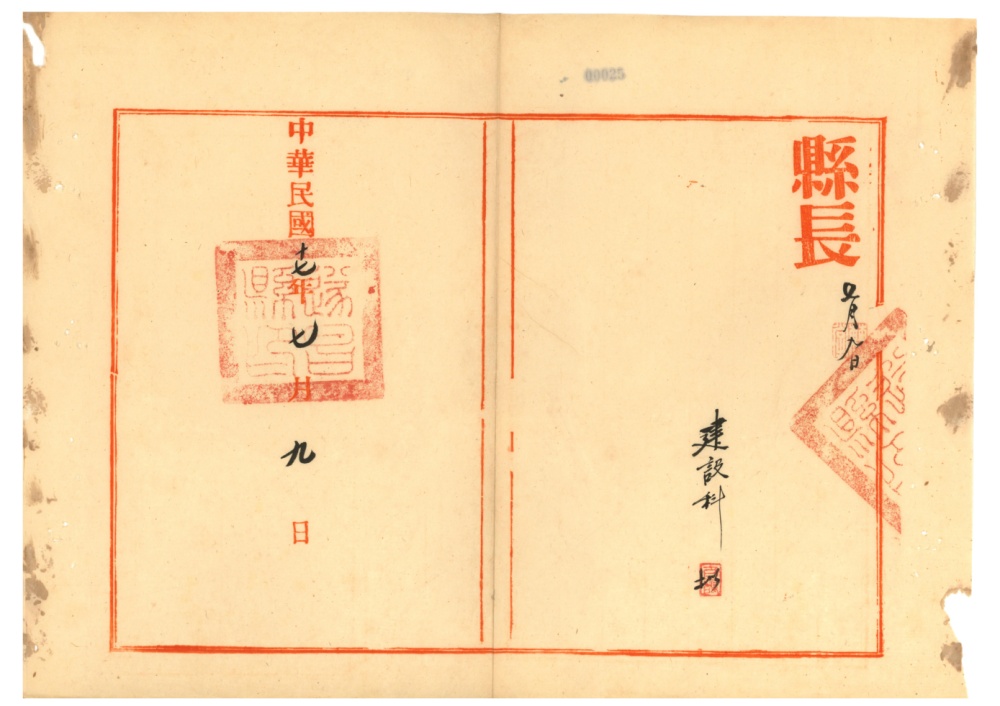 00025
縣長
七月九日
建設科
中華民國十七年七月九日